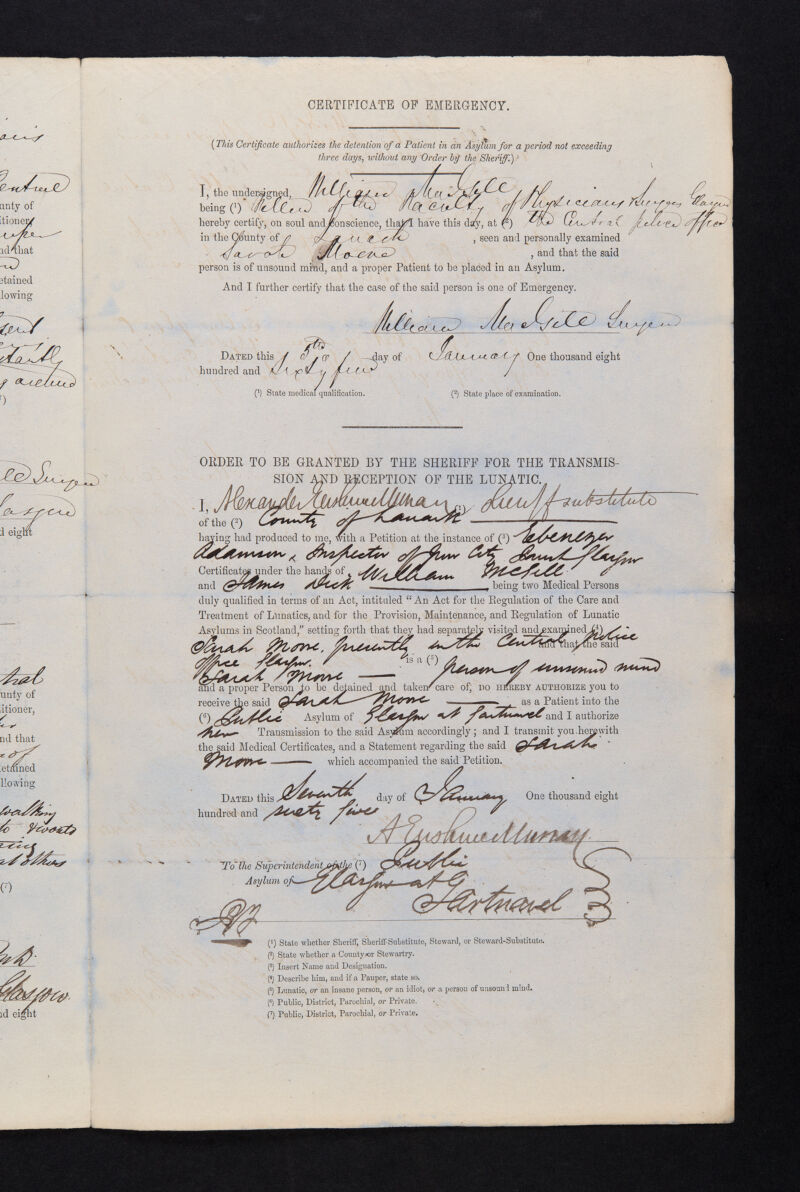 ious
entral
unty of
itioner
uper
nd that
etained
llowing
stantly
g around
Surgeon
Glasgow
d eight
tral
unty of
itioner,
nd that
of
etained
llowing
walking
to
others
(⁷)
Glasgow
nd eight
CERTIFICATE OF EMERGENCY.
(This Certificate authorizes the detention of a Patient in an Asylum for a period not exceeding
three days, without any Order by the Sheriff.)
I, the undersigned, William MacGill
being (¹) Fellow of the Faculty of Physicians & Surgeons Glasgow
hereby certify, on soul and conscience, that I have this day, at (²) the Central police office
in the County of Lanark , seen and personally examined
Sarah Moore , and that the said
person is of unsound mind, and a proper Patient to be placed in an Asylum.
And I further certify that the case of the said person is one of Emergency.
William MacGill Surgeon
DATED this 5th day of January One thousand eight
hundred and Sixty five
(¹) State medical qualification. (²) State place of examination.
ORDER TO BE GRANTED BY THE SHERIFF FOR THE TRANSMIS-
SION AND RECEPTION OF THE LUNATIC.
I, Alexander Erskine Murray (¹) Sheriff substitute
of the (²) County of Lanark
having had produced to me, with a Petition at the instance of (³) Ebenezer
Adamson, Inspector of Poor City Parish Glasgow
Certificates under the hands of William McGill
and James Dick being two Medical Persons
duly qualified in terms of an Act, intituled "An Act for the Regulation of the Care and
Treatment of Lunatics, and for the Provision, Maintenance, and Regulation of Lunatic
Asylums in Scotland," setting forth that they had separately visited and examined (⁴)
Sarah Moore, presently in the Central Police
Office Glasgow. and that the said
Sarah Moore is a (⁵) person of unsound mind
and a proper Person to be detained and taken care of, DO HEREBY AUTHORIZE you to
receive the said Sarah Moore as a Patient into the
(⁶) Public Asylum of Glasgow at Gartnavel and I authorize
her Transmission to the said Asylum accordingly; and I transmit you herewith
the said Medical Certificates, and a Statement regarding the said Sarah
Moore which accompanied the said Petition.
DATED this Seventh day of January One thousand eight
hundred and sixty five
A Erskine Murray
To the Superintendent of the (⁷) Public
Asylum of Glasgow at G
Gartnavel
(¹) State whether Sheriff, Sheriff-Substitute, Steward, or Steward-Substitute.
(²) State whether a County or Stewartry.
(³) Insert Name and Designation.
(⁴) Describe him, and if a Pauper, state so.
(⁵) Lunatic, or an insane person, or an idiot, or a person of unsound mind.
(⁶) Public, District, Parochial, or Private.
(⁷) Public, District, Parochial, or Private.